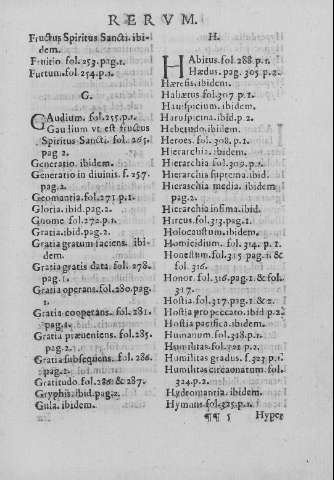 RERVM.
Fructus Spiritus Sancti. ibi-
dem.
Fruitio. fol. 253. pag. 1.
Furtum. fol. 254. p. 1.
G.
GAudium. fol. 255. p. 1.
Gaudium vt est fructus
Spiritus Sancti. fol. 265.
pag. 2.
Generatio. ibidem.
Generatio in diuinis. f. 257.
pag. 2.
Geomantia. fol. 271 p. 1.
Gloria. ibid. pag. 2.
Gnome. fol. 272. p. 1.
Gratia. ibid. pag. 2.
Gratia gratum faciens. ibi-
dem.
Gratia gratis data. fol. 278.
pag. 1.
Gratia operans. fol. 280. pag.
1.
Gratia cooperans. fol. 281.
pag. 1.
Gratia præueniens. fol. 285.
pag. 2.
Gratia subsequens. fol. 286.
pag. 2.
Gratitudo. fol. 286 & 287.
Gryphis. ibid. pag. 2.
Gula. ibidem.
H.
HAbitus. fol. 288. p. 1.
Hædus. pag. 305. p. 2.
Hæresis. ibidem.
Haliætus fol. 307 p. 1.
Haruspicium. ibidem.
Haruspicina. ibid. p. 2.
Hebetudo. ibidem.
Heroes. fol. 308. p. 1.
Hierarchia. ibidem.
Hierarchia fol. 309. p. 1.
Hierarchia suprema. ibid.
Hierarchia media. ibidem
pag. 2.
Hierarchia infima. ibid.
Hircus. fol. 313. pag. 1.
Holocaustum. ibidem.
Homicidium. fol. 314. p. 1.
Honestum. fol. 315 pag. 1. &
fol. 316.
Honor. fol. 316. pag. 1. & fol.
317.
Hostia. fol. 317. pag. 1. & 2.
Hostia pro peccato. ibid p. 2.
Hostia pacifica. ibidem.
Humanum. fol. 318. p. 1.
Humilitas. fol. 321. p. 2.
Humilitas gradus. f. 323 p. 1.
Humilitas circa
324. p. 2.
Hydromantia. ibidem.
Hymnus. fol. 325. p. 1.
¶¶ 5 Hyper